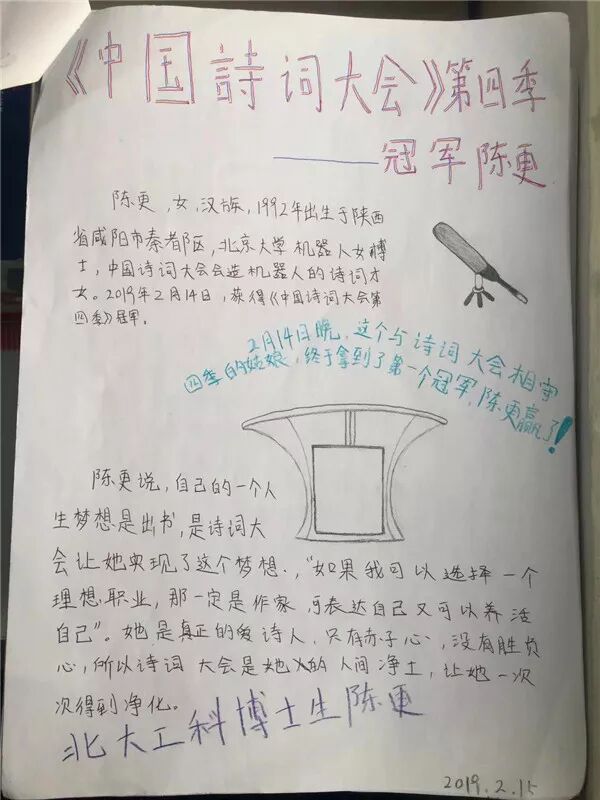 《中国詩词大会》第四季
——冠军陈更
陈更，女，汉族，1992年出生于陕西
省咸阳市秦都区，北京大学机器人女博
士，中国诗词大会会造机器人的诗词才
女。2019年2月14日，获得《中国诗词大会第
四季》冠军。
2月14日晚，这个与诗词大会相守
四季的姑娘，终于拿到了第一个冠军，陈更赢了！
陈更说，自己的一个人
生梦想是出书，是诗词大
会让她实现了这个梦想．，“如果我可以选择一个
理想职业，那一定是作家，可表达自己又可以养活
自己”。她是真正的爱诗人，只有赤子心，没有胜负
心，所以诗词大会是她的人间净土，让她一次
次得到净化。
北大工科博士生陈更
2019.2.15